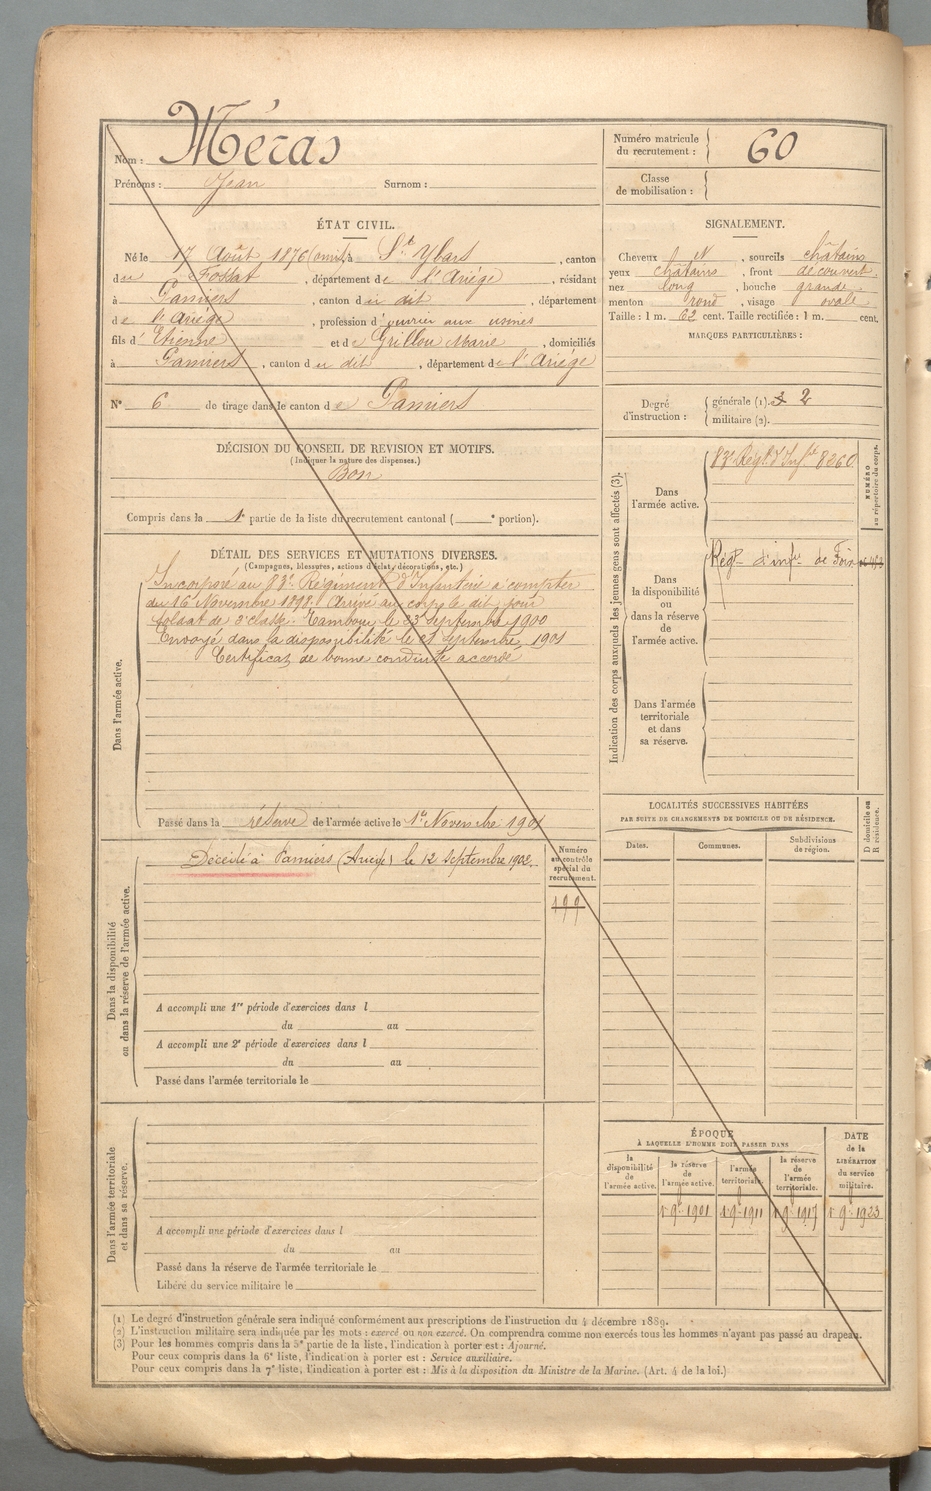 Nom : Méras
Prénoms : Jean Surnom :
Numéro matricule
du recrutement : 60
Classe
de mobilisation :
ÉTAT CIVIL.
Né le 17 Août 1876 (omis) à St Ybars , canton
du Fossat , département de l'Ariège , résidant
à Pamiers , canton du dit , département
de l'Ariège , profession d'ouvrier aux usines
fils d'Etienne et de Grillou Marie , domiciliés
à Pamiers , canton du dit , département de l'Ariège
N° 6 de tirage dans le canton de Pamiers
SIGNALEMENT.
Cheveux N , sourcils châtains
yeux châtains , front découvert
nez long , bouche grande
menton rond , visage ovale
Taille : 1 m. 62 cent. Taille rectifiée : 1 m. cent.
MARQUES PARTICULIÈRES :
Degré
d'instruction :
générale (1). 2
militaire (2).
DÉCISION DU CONSEIL DE REVISION ET MOTIFS.
(Indiquer la nature des dispenses.)
Bon
Compris dans la 1e partie de la liste du recrutement cantonal ( e portion).
DÉTAIL DES SERVICES ET MUTATIONS DIVERSES.
(Campagnes, blessures, actions d'éclat, décorations, etc.)
Dans l'armée active.
Incorporé au 83e Régiment d'Infanterie à compter
du 16 Novembre 1898. Arrivé au corps le dit jour
soldat de 2e classe. Tambour le 23 septembre 1900
Envoyé dans la disponibilité le 21 septembre 1901
Certificat de bonne conduite accordé
Passé dans la réserve de l'armée active le 1er Novembre 1901
Dans la disponibilité
ou dans la réserve de l'armée active.
Décédé à Pamiers (Ariège) le 12 septembre 1902.
Numéro
au contrôle
spécial du
recrutement.
199
A accompli une 1re période d'exercices dans l
du au
A accompli une 2e période d'exercices dans l
du au
Passé dans l'armée territoriale le
Dans l'armée territoriale
et dans sa réserve.
A accompli une période d'exercices dans l
du au
Passé dans la réserve de l'armée territoriale le
Libéré du service militaire le
Indication des corps auxquels les jeunes gens sont affectés (3).
Dans
l'armée active.
83e Régt d'Infie 8260
NUMÉRO
au répertoire du corps.
Dans
la disponibilité
ou
dans la réserve
de
l'armée active.
Régt d'infie de Foix
Dans l'armée
territoriale
et dans
sa réserve.
LOCALITÉS SUCCESSIVES HABITÉES
PAR SUITE DE CHANGEMENTS DE DOMICILE OU DE RÉSIDENCE.
Dates. Communes. Subdivisions
de région.
D domicile ou
R résidence.
ÉPOQUE
À LAQUELLE L'HOMME DOIT PASSER DANS
la
disponibilité
de
l'armée active.
la réserve
de
l'armée active.
l'armée
territoriale.
la réserve
de
l'armée
territoriale.
DATE
de la
LIBÉRATION
du service
militaire.
1 9bre 1901 1 9bre 1911 1 9bre 1917 1 9bre 1923
(1) Le degré d'instruction générale sera indiqué conformément aux prescriptions de l'instruction du 4 décembre 1889.
(2) L'instruction militaire sera indiquée par les mots : exercé ou non exercé. On comprendra comme non exercés tous les hommes n'ayant pas passé au drapeau.
(3) Pour les hommes compris dans la 5e partie de la liste, l'indication à porter est : Ajourné.
Pour ceux compris dans la 6e liste, l'indication à porter est : Service auxiliaire.
Pour ceux compris dans la 7e liste, l'indication à porter est : Mis à la disposition du Ministre de la Marine. (Art. 4 de la loi.)